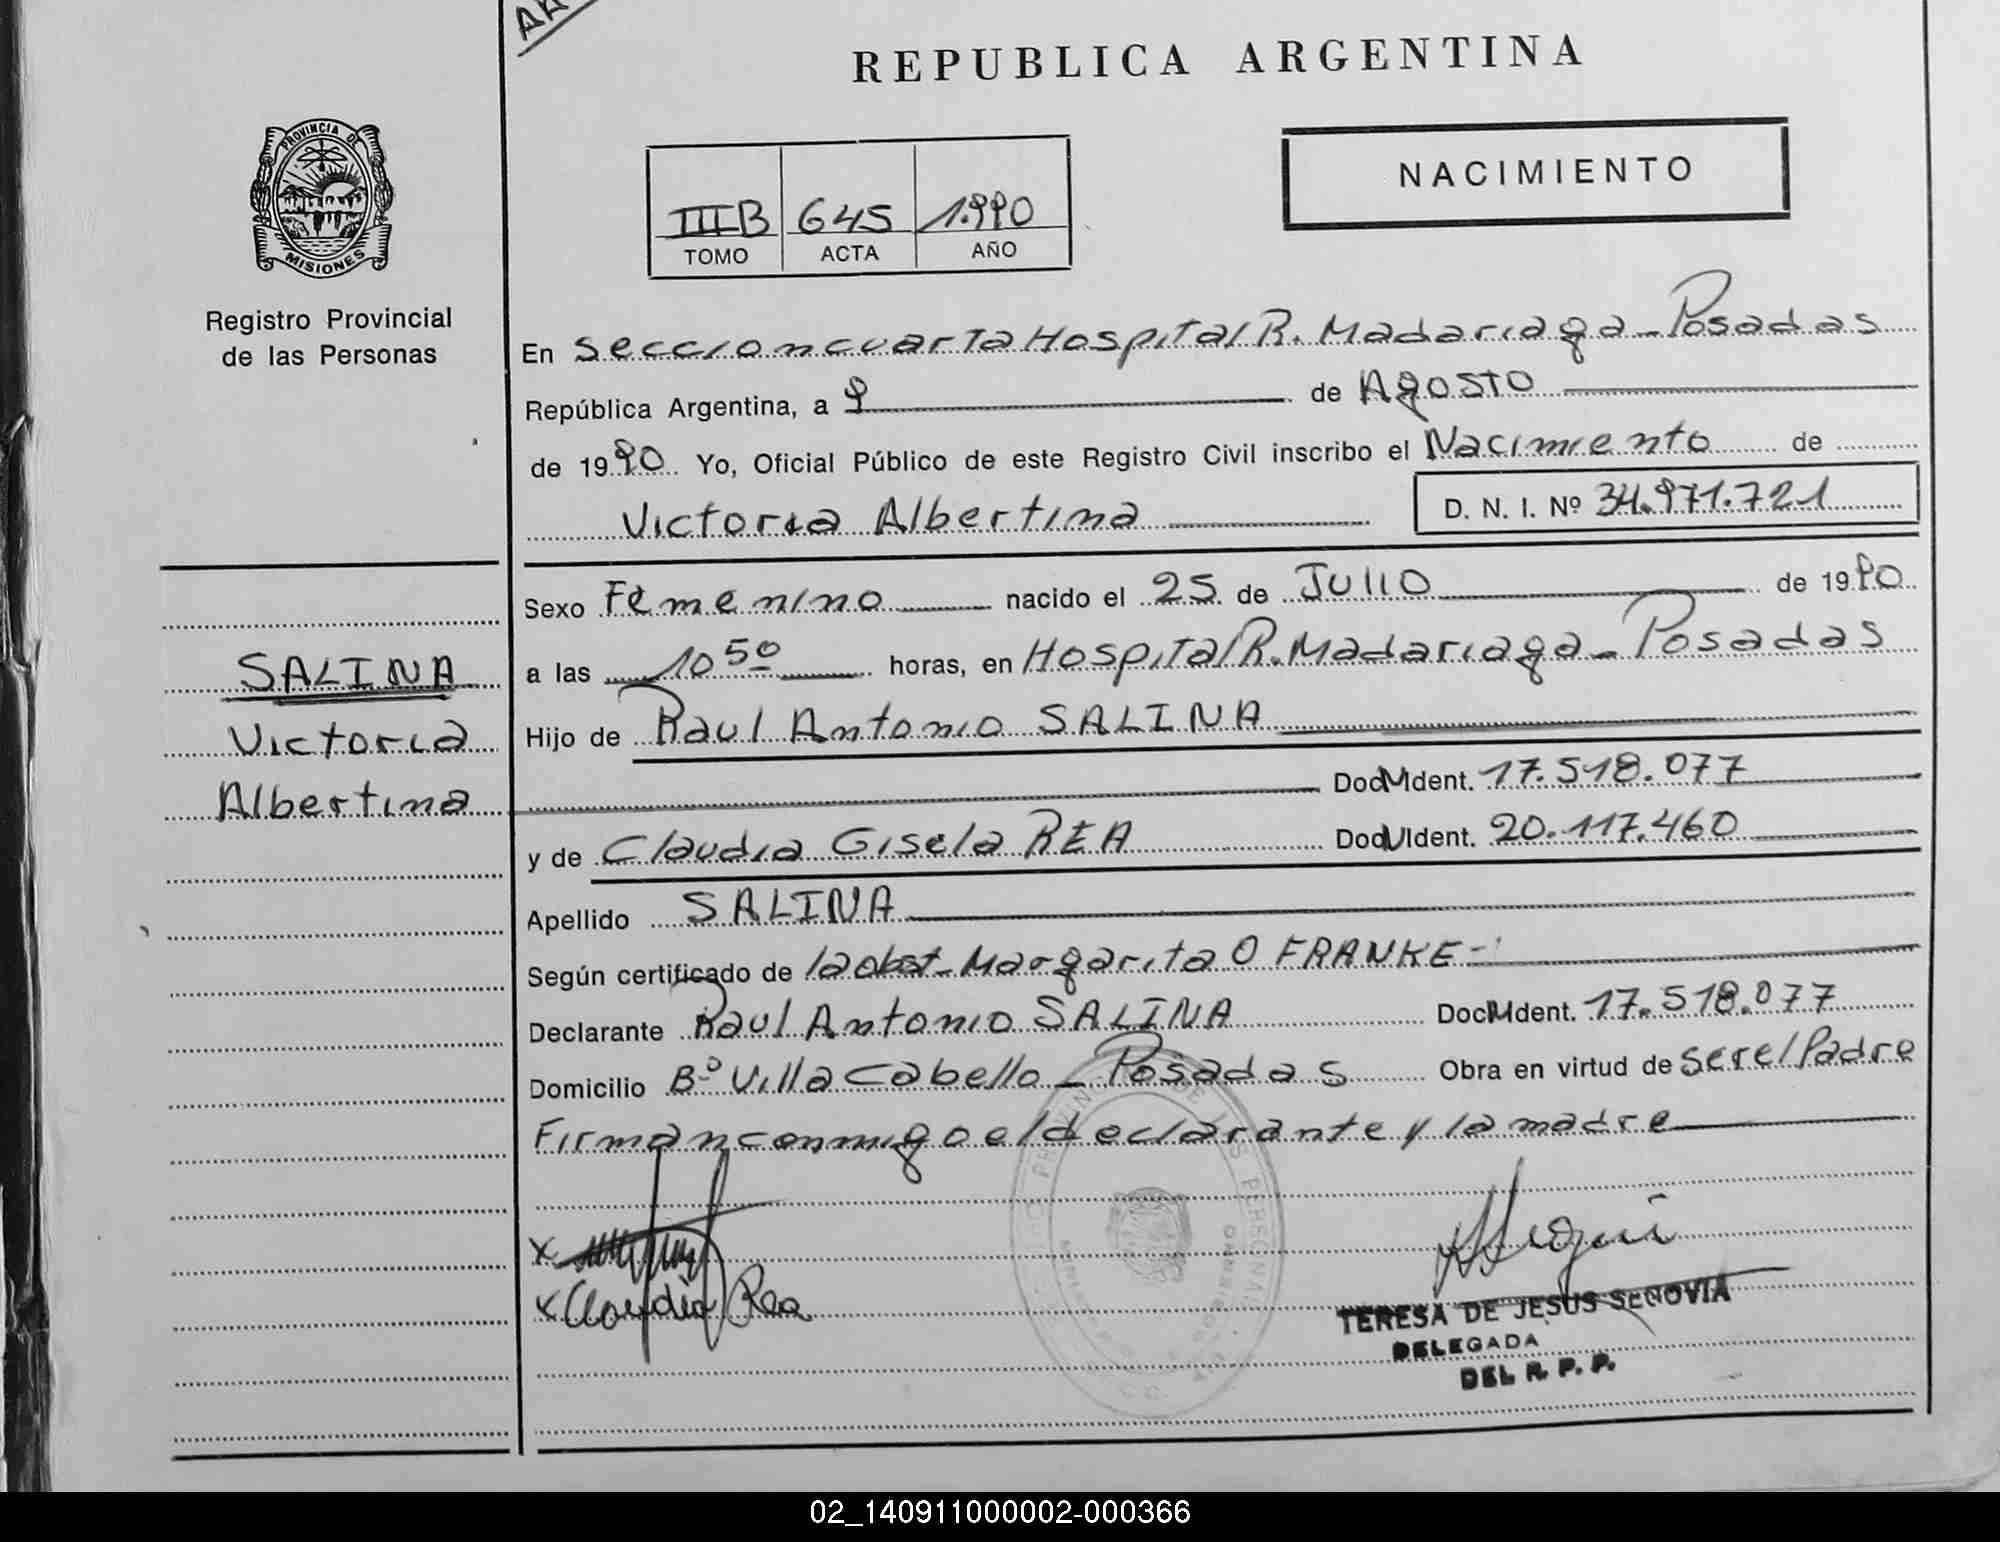 REPUBLICA ARGENTINA
PROVINCIA DE MISIONES
Registro Provincial
de las Personas
NACIMIENTO
IIIB 645 1.990
TOMO ACTA AÑO
En Seccion cuarta Hospital R. Madariaga - Posadas
República Argentina, a 9 de Agosto
de 1990 Yo, Oficial Público de este Registro Civil inscribo el Nacimiento de
Victoria Albertina D. N. I. Nº 34.971.721
Sexo Femenino nacido el 25 de Julio de 1990
a las 10 50 horas, en Hospital R. Madariaga - Posadas
Hijo de Raul Antonio SALINA
Doc M Ident. 17.518.077
y de Claudia Gisela REA Doc U Ident. 20.117.460
Apellido SALINA
Según certificado de la obst. Margarita O FRANKE -
Declarante Raul Antonio SALINA Doc M Ident. 17.518.077
Domicilio Bº Villa Cabello - Posadas Obra en virtud de ser el Padre
Firman conmigo el declarante y la madre
SALINA
Victoria
Albertina
x
x Claudia Rea
TERESA DE JESUS SEGOVIA
DELEGADA
DEL R. P. P.
02_140911000002-000366